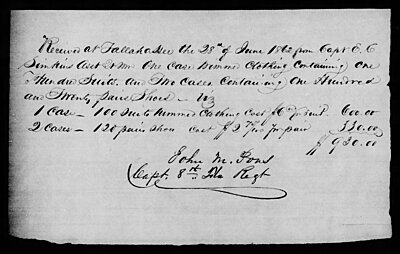 Received at Tallahassee the 28th of June 1862 from Capt E. C
Simkins Asst Qr Mr. One Case Summer Clothing Containing One
Hundred Suits. and Two Cases Containing One Hundred
and Twenty pairs Shoes - Viz
1 Case - 100 Suits Summer Clothing Cost $6 pr Suit 600.00
2 Cases - 120 pairs Shoes Cost $2 75/100 pr pair 330.00
$ 930.00
John M.
Capt. 8th Fla Regt